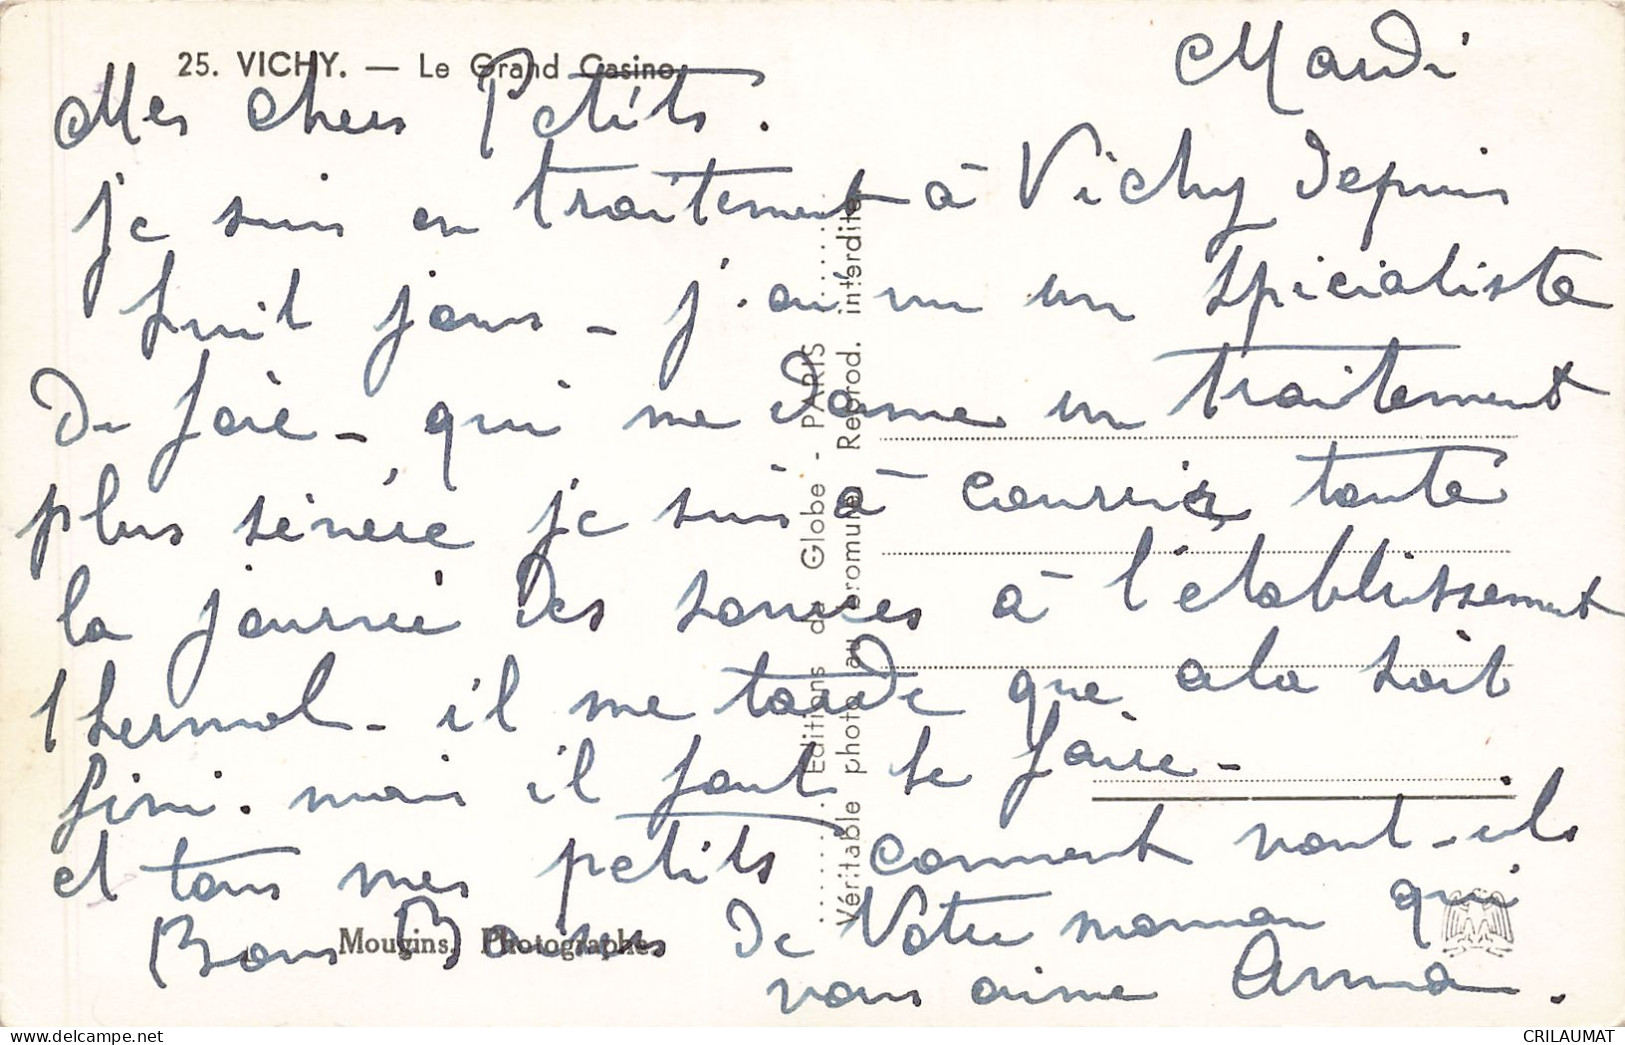 25. VICHY. — Le Grand Casino.
Mardi
Mes chers Petits.
Je suis en traitement à Vichy depuis
huit jours - j'ai vu un spécialiste
du foie - qui me donne un traitement
plus sévère je suis à courrir toute
la journée des sources à l'établissement
thermal - il me tarde que cela soit
fini. mais il faut le faire -
et tous mes petits comment vont-ils
Bons Baisers de Votre maman qui
vous aime Anna.
Mougins, Photographe.
Editions du Globe - PARIS
Véritable photo au bromure. Reprod. interdite
CRILAUMAT